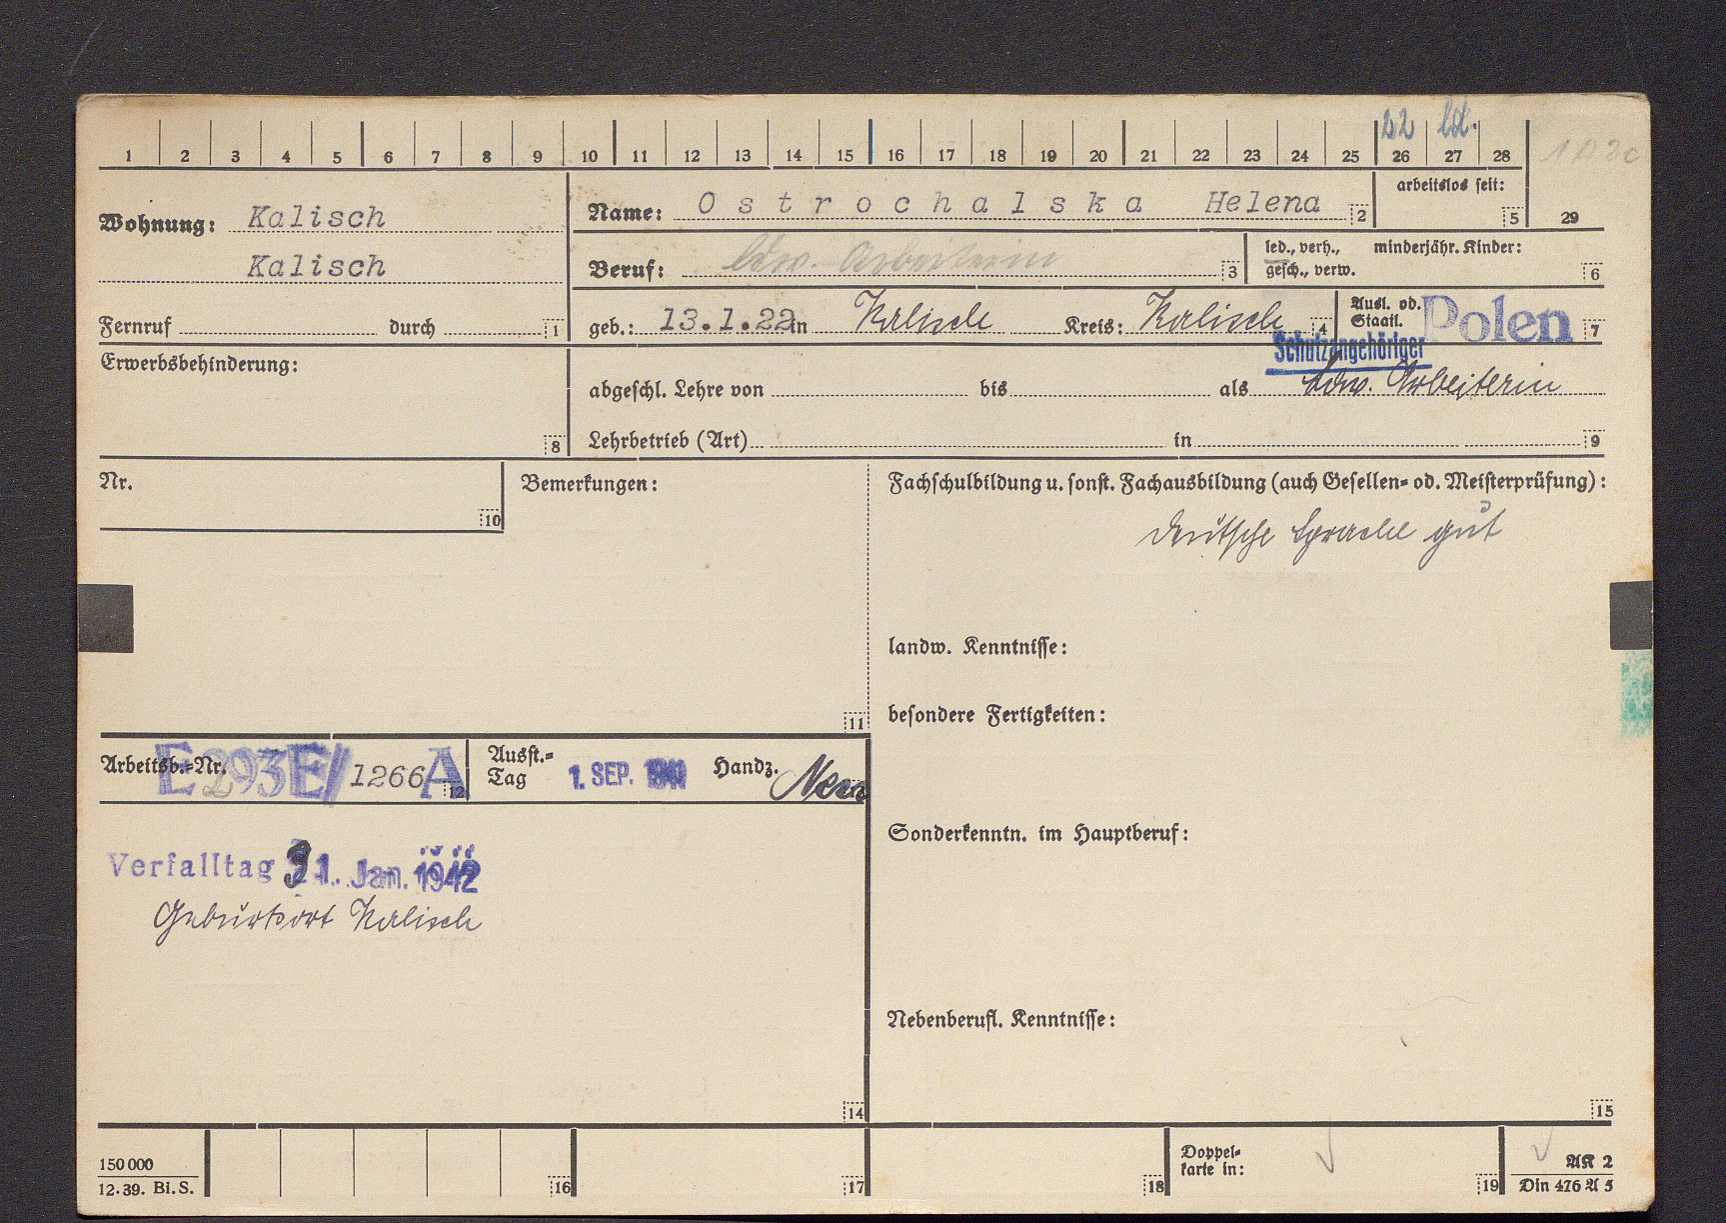 22 Ld.
1 2 3 4 5 6 7 8 9 10 11 12 13 14 15 16 17 18 19 20 21 22 23 24 25 26 27 28
Wohnung: Kalisch
Kalisch
Fernruf durch 1
Name: Ostrochalska Helena 2
arbeitslos seit: 5
29
Beruf: Ldw. Arbeiterin 3
led., verh., minderjähr. Kinder:
gesch., verw. 6
geb.: 13.1.22 in Kalisch Kreis: Kalisch 4
Ausl. od. Staatl. Polen 7
Schutzangehöriger
Erwerbsbehinderung: 8
abgeschl. Lehre von bis als Ldw. Arbeiterin
Lehrbetrieb (Art) in 9
Nr. 10
Bemerkungen: 11
Fachschulbildung u. sonst. Fachausbildung (auch Gesellen- od. Meisterprüfung):
Deutsche Sprache gut
landw. Kenntnisse:
besondere Fertigkeiten:
Arbeitsb.-Nr. E293E/ 1266 A 12
Ausst.-Tag 1. SEP. Handz.
Sonderkenntn. im Hauptberuf:
Verfalltag 31. Jan. 1942
Geburtsort Kalisch
Nebenberufl. Kenntnisse:
14 15
150 000
12.39. Bi.S.
16 17 18
Doppel-
karte in: 19
AK 2
Din 476 A 5